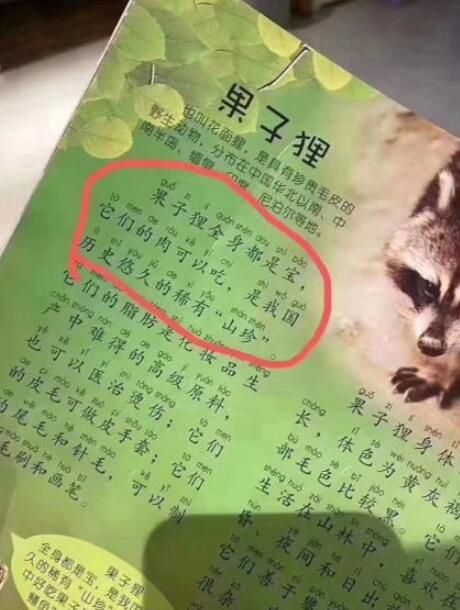 果子狸
也叫花面狸，是具有珍贵毛皮的
野生动物，分布在中国华北以南、中
南半岛、缅甸、印度、尼泊尔等地。
guǒ zi lí quán shēn dōu shì bǎo
果子狸全身都是宝，
tā men de ròu kě yǐ chī shì wǒ guó
它们的肉可以吃，是我国
lì shǐ yōu jiǔ de xī yǒu shān zhēn
历史悠久的稀有“山珍”。
它们的脂肪是化妆品生
chǎn zhōng nán dé de gāo jí yuán liào
产中难得的高级原料，
yě kě yǐ yī zhì tàng shāng tā men
也可以医治烫伤；它们
de pí máo kě zuò pí shǒu tào tā men
的皮毛可做皮手套；它们
de wěi máo hé zhēn máo kě yǐ zhì
的尾毛和针毛，可以制
máo shuā hé huà bǐ
毛刷和画笔。
guǒ zi lí shēn tǐ
果子狸身体
长，体色为黄灰褐
部毛色比较黑。
生活在山林中，
昏、夜间和日出
它们善于攀
很杂
果子狸
全身都是宝，是我国
久的稀有“山珍
中好吃果子